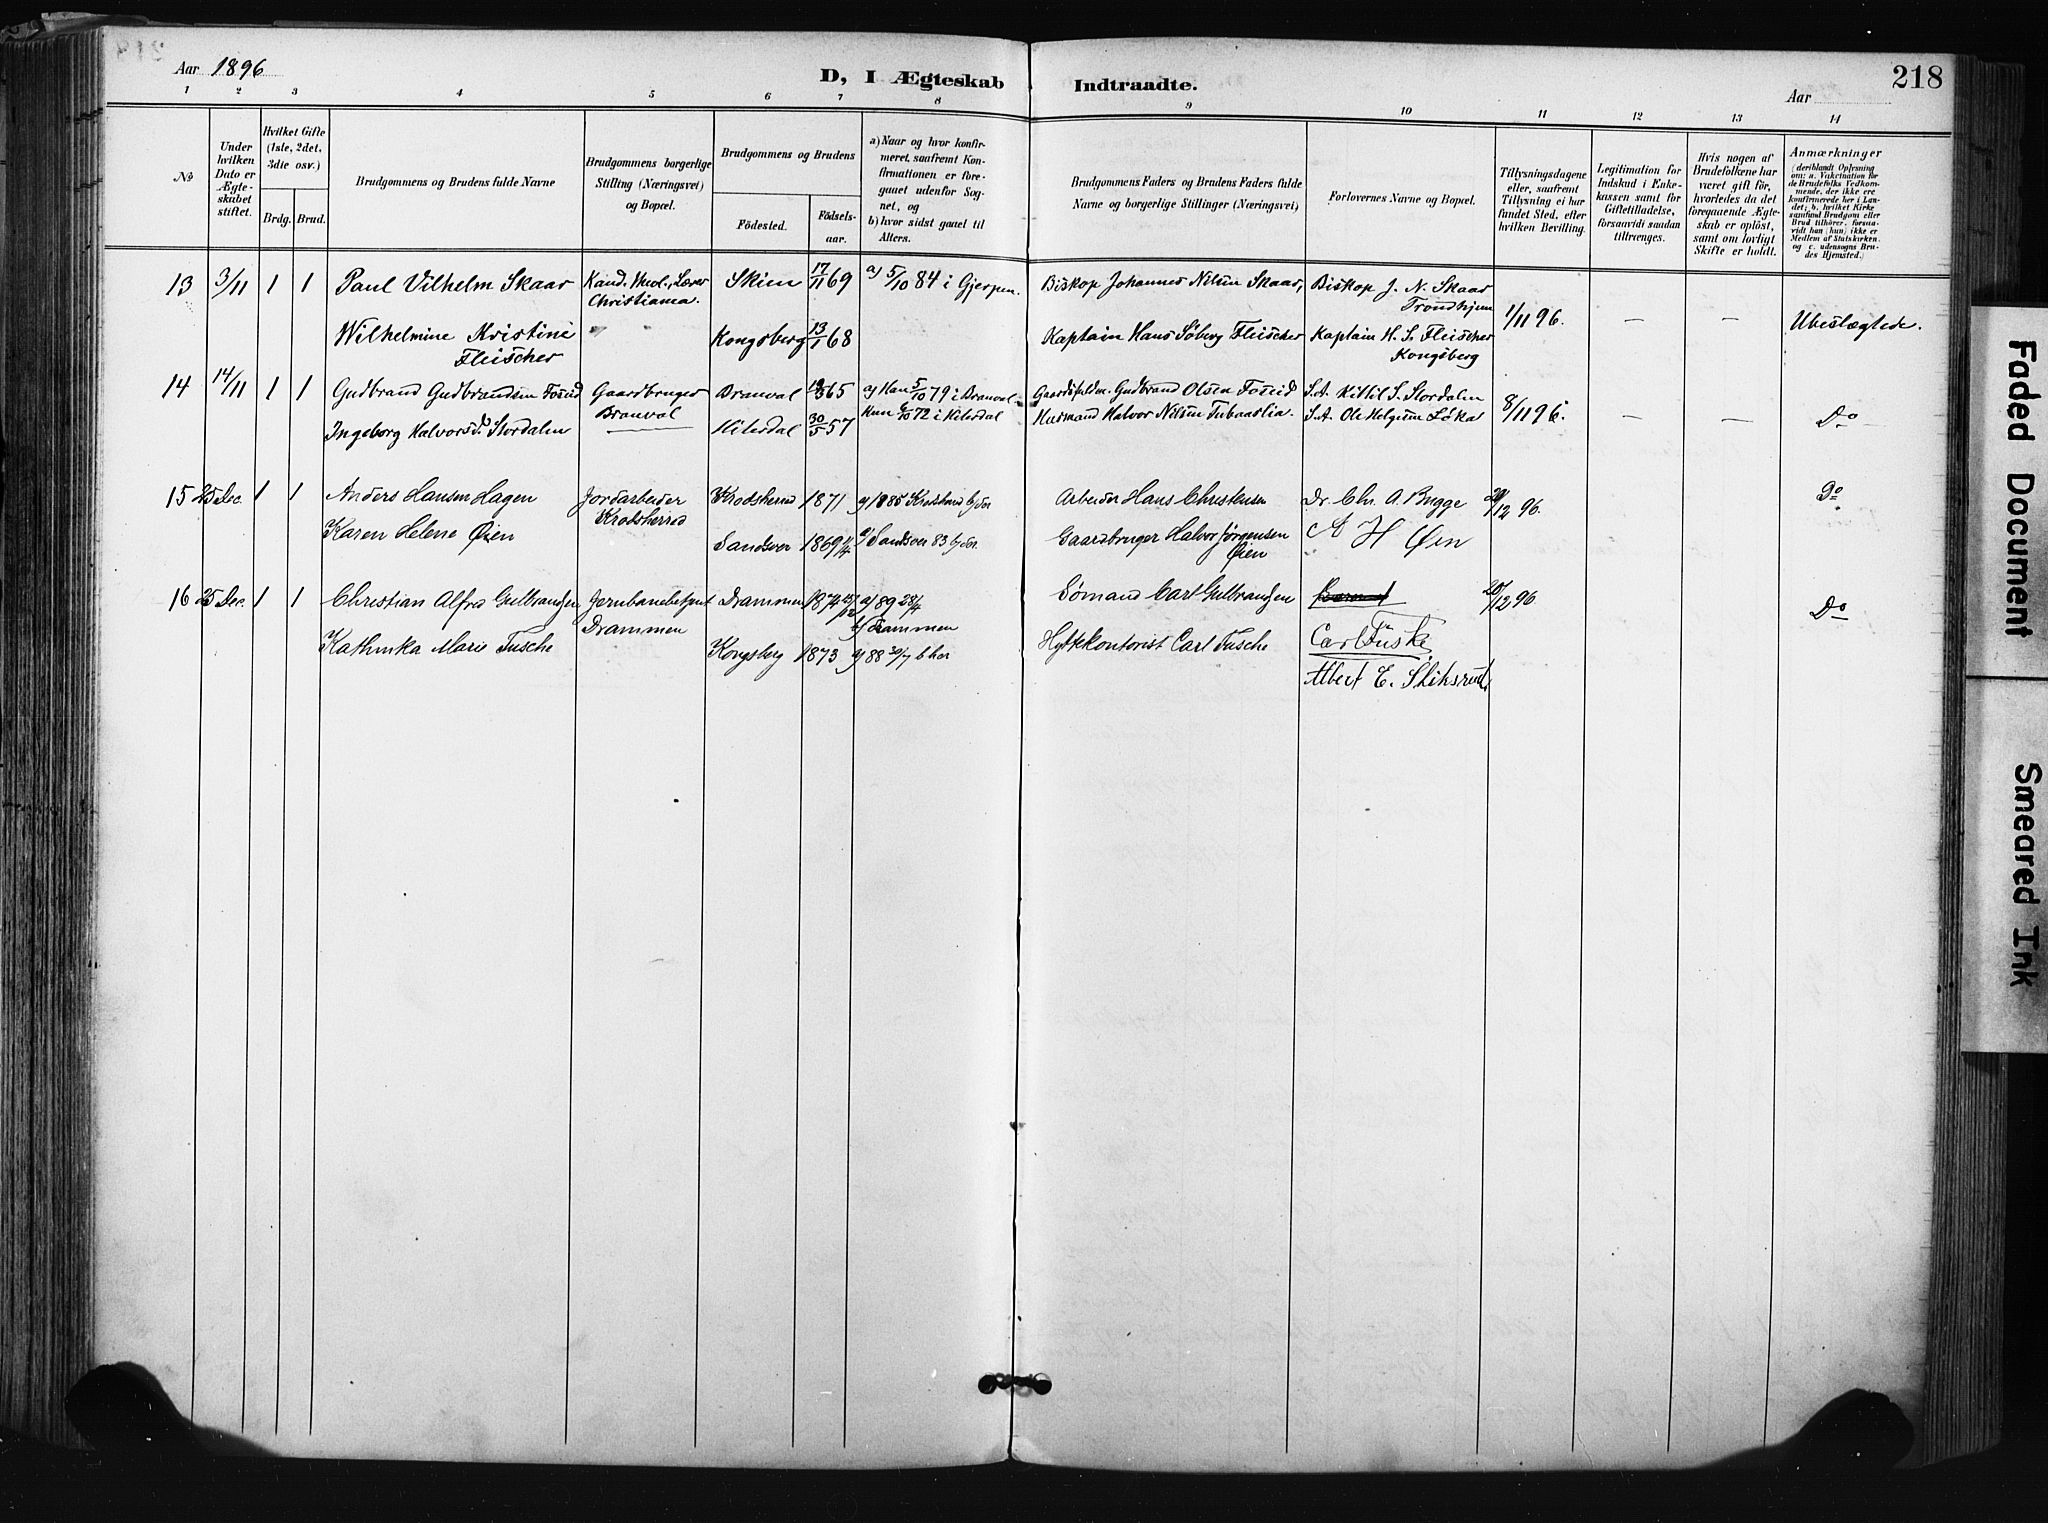 Aar 1896
D, I Ægteskab Indtraadte.
Aar
218
1 2 3 4 5 6 7 8 9 10 11 12 13 14
No
Under hvilken Dato er Ægteskabet stiftet.
Hvilket Gifte (1ste, 2det, 3die osv.)
Brdg. Brud.
Brudgommens og Brudens fulde Navne
Brudgommens borgerlige Stilling (Næringsvei) og Bopæl.
Brudgommens og Brudens
Fødested.
Fødselsaar.
a) Naar og hvor konfirmeret, saafremt Konfirmationen er foregaaet udenfor Sognet, og
b) hvor sidst gaaet til Alters.
Brudgommens Faders og Brudens Faders fulde Navne og borgerlige Stillinger (Næringsvei)
Forlovernes Navne og Bopæl.
Tillysningsdagene eller, saafremt Tillysning ei har fundet Sted, efter hvilken Bevilling.
Legitimation for Indskud i Enkekassen samt for Giftetilladelse, forsaavidt saadan tiltrænges.
Hvis nogen af Brudefolkene har været gift før, hvorledes da det foregaaende Ægteskab er opløst, samt om lovligt Skifte er holdt.
Anmærkninger
(deriblandt Oplysning om: a. Vakcination for de Brudefolks Vedkommende, der ikke ere konfirmerede her i Landet; b. hvilket Kirkesamfund Brudgom eller Brud tilhører, forsaavidt han (hun) ikke er Medlem af Statskirken, og c. udensogns Brudes Hjemsted.)
13 3/11 1 1 Paul Vilhelm Skaar Kand. theol., Lærer Skien 17/11 69 a) 5/10 84 i Gjerpen. Biskop Johannes Nilsen Skaar, Biskop J. N. Skaar
Christiania. Trondhjem 1/11 96. — — Ubeslægtede.
Wilhelmine Kristine Kongsberg 13/1 68 Kaptain Hans Søberg Fleischer Kaptain H. S. Fleischer
Fleischer Kongsberg
14 14/11 1 1 Gudbrand Gudbrandsen Foseid Gaardbruger Branvol 65 a) Han 5/10 79 i Branvol Gudbrand Olsen Foseid S.A. Kittil S. Stordalen
Branvol Hun 6/10 72 i Hitterdal Husmand Halvor Nilsen S.A. Ole Helgesen Løkas 8/11 96. — — Do
Ingeborg Halvorsd. Stordalen 30/5 57
15 25 Dec. 1 1 Anders Hansen Hagen Jordarbeider Krødsherred 1871 a) 1885 Krødsherred b) do. Arbeider Hans Christensen Dr. Chr. A. Bugge 20/12 96. Do
Karen Helene Øien Krødsherred Sandsver 1869 a) Sandsver 83 b) do. Gaardbruger Halvor Jørgensen A H Øen
Øien
16 25 Dec. 1 1 Christian Alfred Gulbrandsen Jernbanebetjent Drammen 1874 a) 89 28/4 Sømand Carl Gulbrandsen 20/12 96 Do
Drammen b) Drammen
Kathinka Marie Tusche Kongsberg 1873 a) 88 30/7 b her Hyttekontorist Carl Tusche Carl Tuske
Albert E. Sliksrud.
Faded Document
Smeared Ink